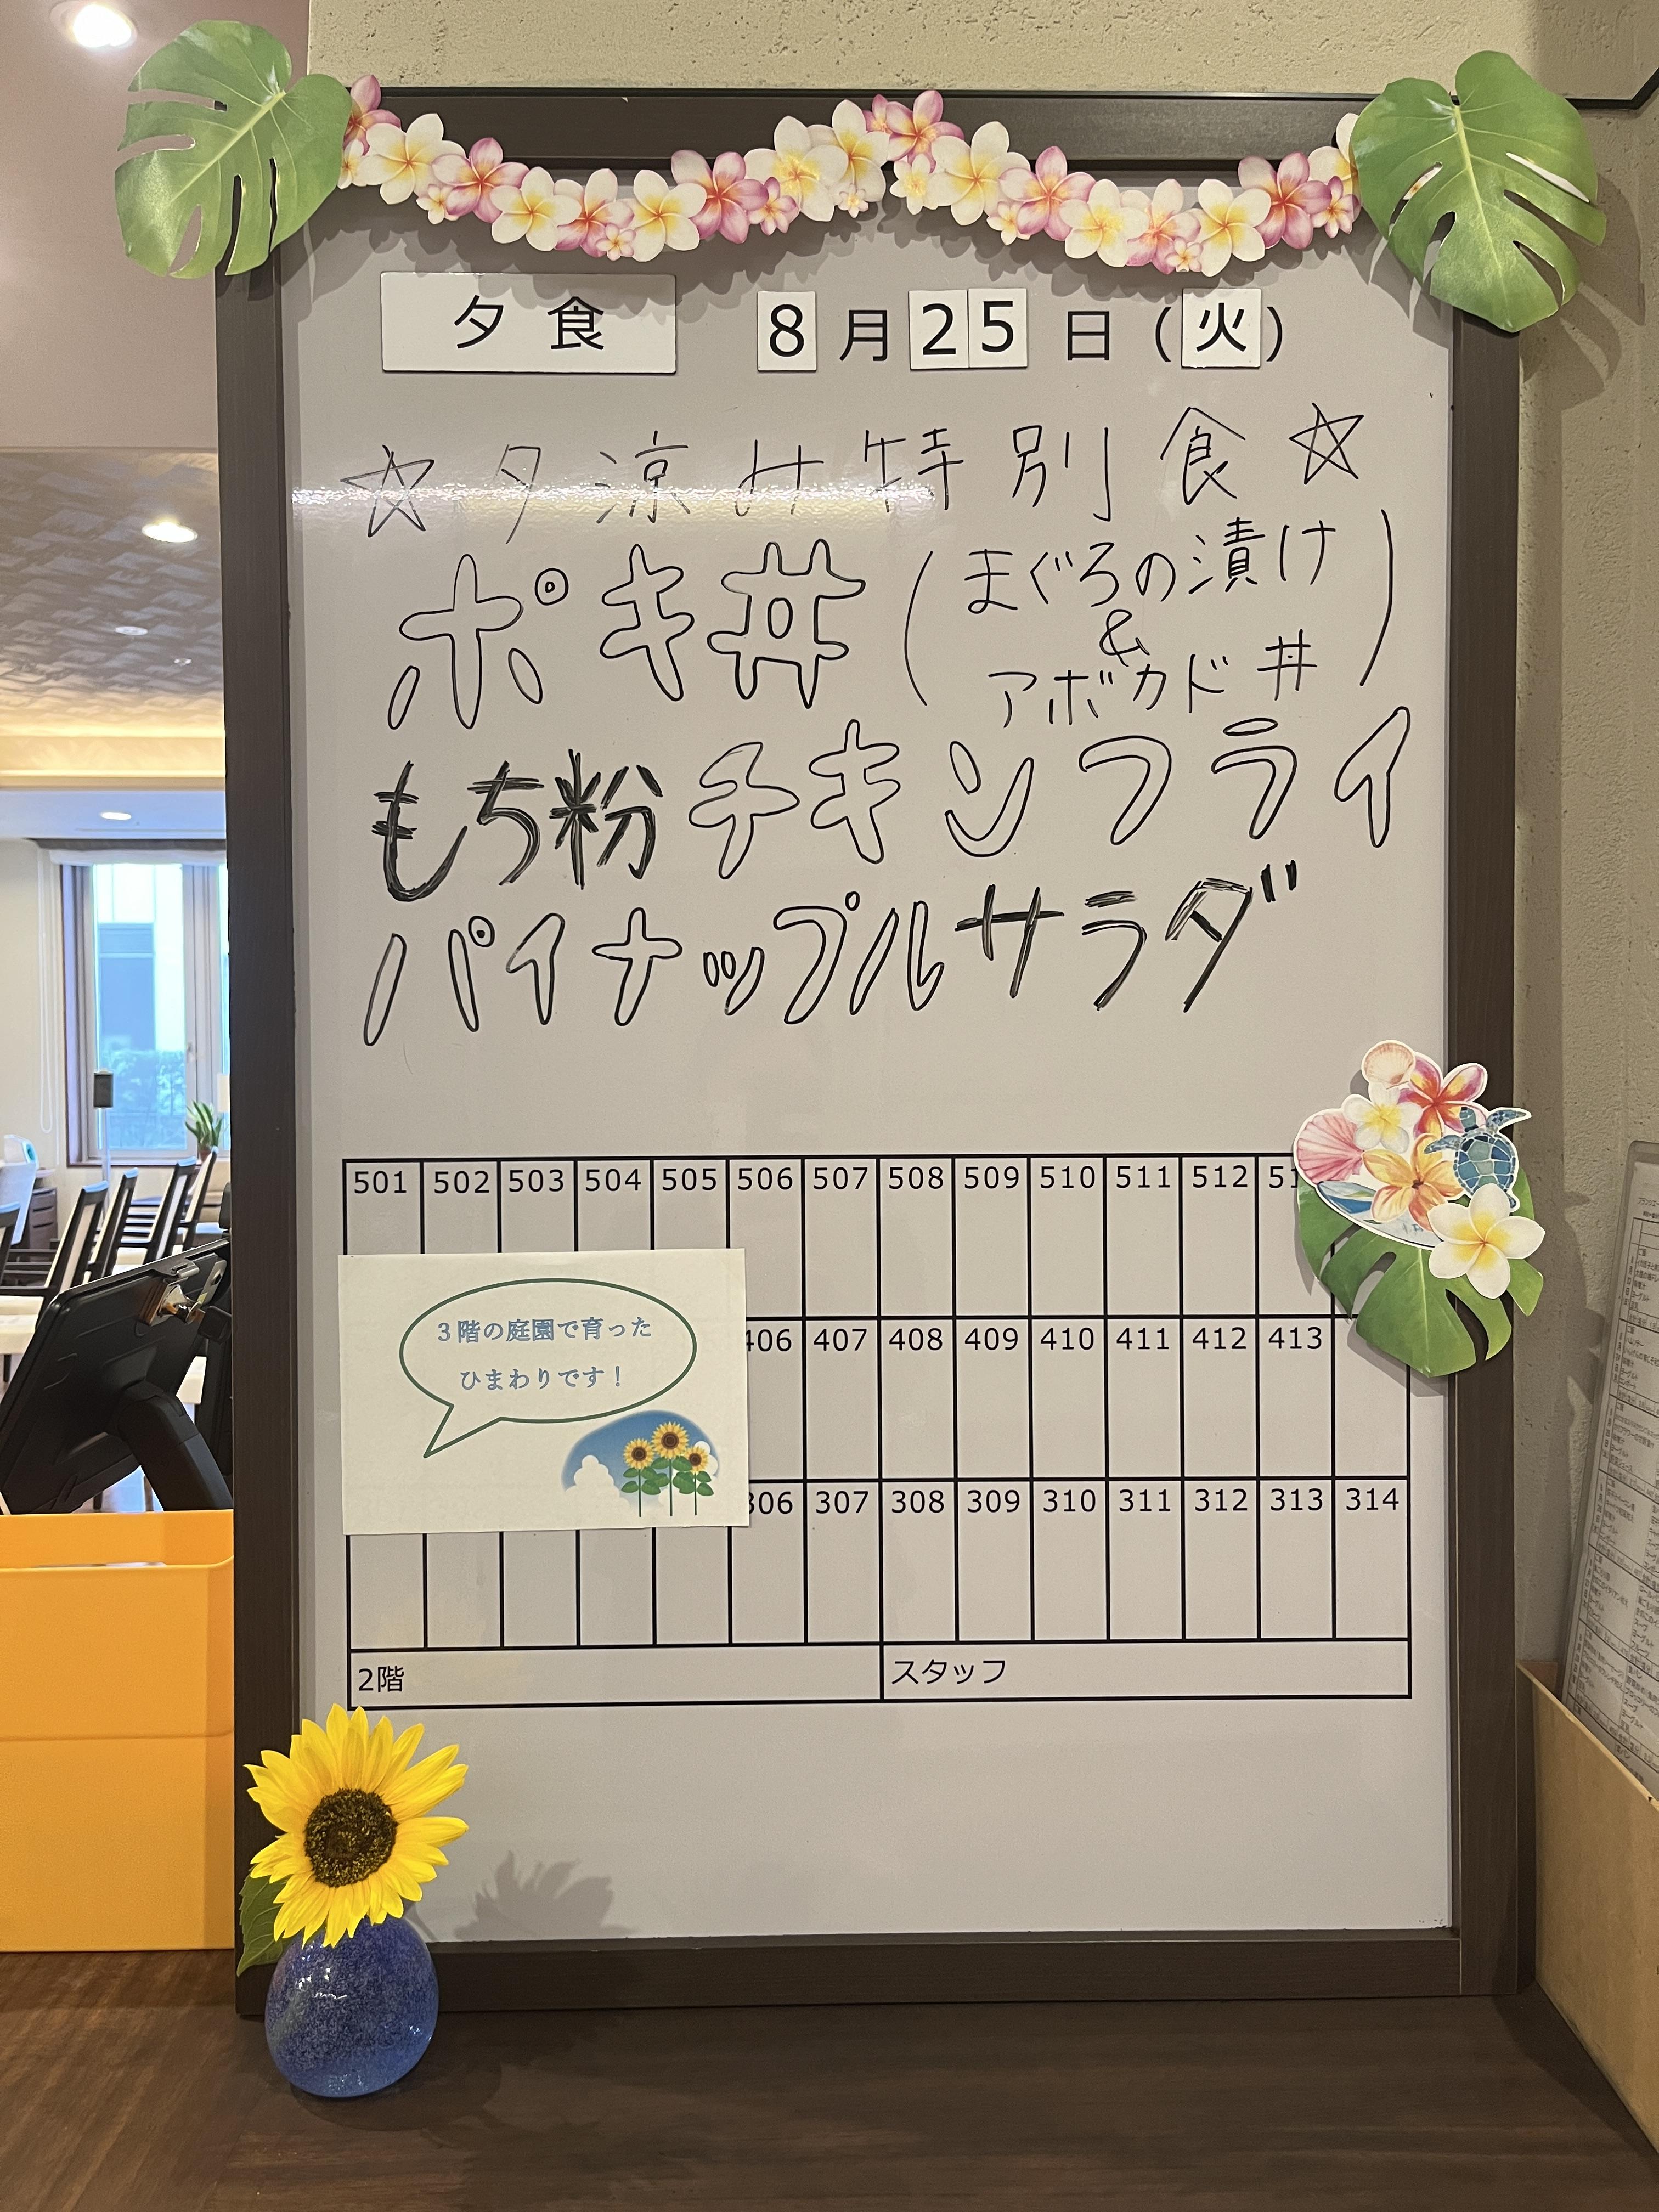 夕食 8月25日(火)
☆夕涼み特別食☆
ポキ丼(まぐろの漬け
&
アボカド丼)
もち粉チキンフライ
パイナップルサラダ
501 502 503 504 505 506 507 508 509 510 511 512
3階の庭園で育った
ひまわりです!
406 407 408 409 410 411 412 413
306 307 308 309 310 311 312 313 314
2階 スタッフ